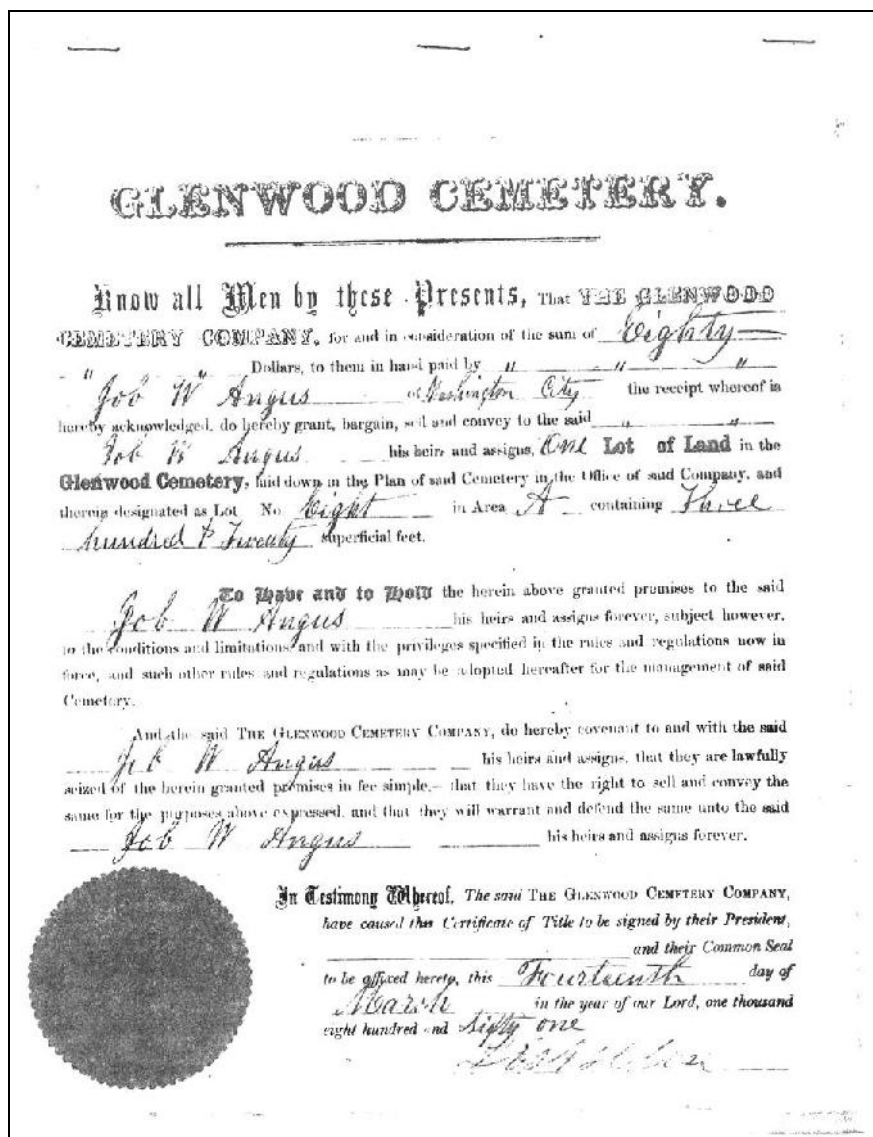 GLENWOOD CEMETERY.
Know all Men by these Presents, That THE GLENWOOD
CEMETERY COMPANY, for and in consideration of the sum of Eighty
" Dollars, to them in hand paid by " " "
Job W Angus of Washington City the receipt whereof is
hereby acknowledged, do hereby grant, bargain, sell and convey to the said " "
Job W Angus his heirs and assigns, One Lot of Land in the
Glenwood Cemetery, laid down in the Plan of said Cemetery in the Office of said Company, and
therein designated as Lot No. Eight in Area A containing Three
hundred & Twenty superficial feet.
To Have and to Hold the herein above granted premises to the said
Job W Angus his heirs and assigns forever, subject however,
to the conditions and limitations, and with the privileges specified in the rules and regulations now in
force, and such other rules and regulations as may be adopted hereafter for the management of said
Cemetery.
And the said THE GLENWOOD CEMETERY COMPANY, do hereby covenant to and with the said
Job W Angus his heirs and assigns, that they are lawfully
seized of the herein granted premises in fee simple,— that they have the right to sell and convey the
same for the purposes above expressed, and that they will warrant and defend the same unto the said
Job W Angus his heirs and assigns forever.
In Testimony Whereof, The said THE GLENWOOD CEMETERY COMPANY,
have caused this Certificate of Title to be signed by their President,
and their Common Seal
to be affixed hereto, this Fourteenth day of
March in the year of our Lord, one thousand
eight hundred and Sixty one